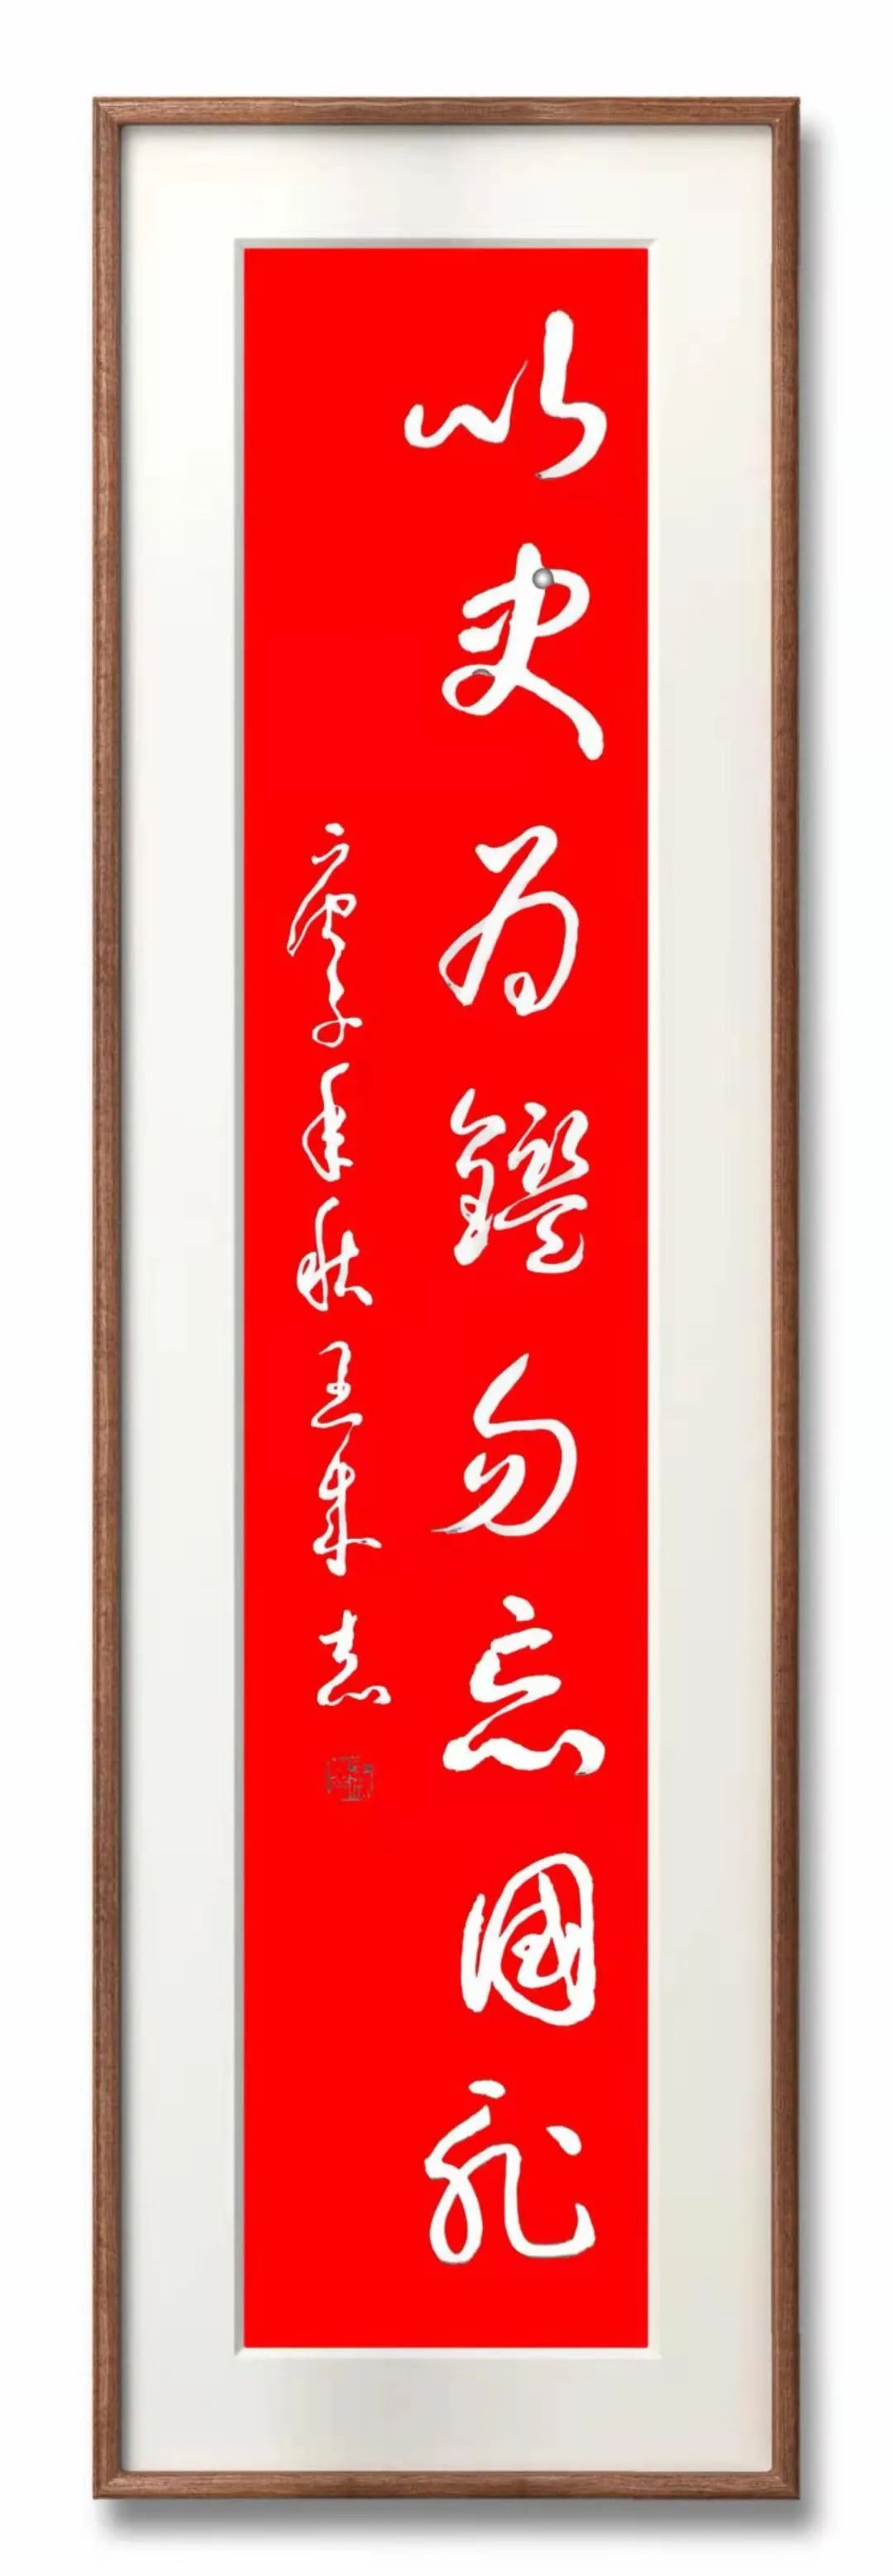 以史为鑑勿忘國耻
庚子年秋王来志